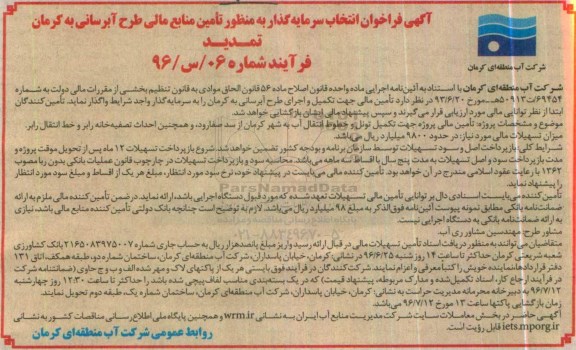 آگهی فراخوان انتخاب سرمایه‌گذار به منظور تأمین منابع مالی طرح آبرسانی به کرمان
تمدید
فرآیند شماره ۰۶/س/۹۶
شرکت آب منطقه‌ای کرمان
شرکت آب منطقه‌ای کرمان با استناد به آئین‌نامه اجرایی ماده واحده قانون اصلاح ماده ۵۶ قانون الحاق موادی به قانون تنظیم بخشی از مقررات مالی دولت به شماره
۶۹۴۵۴/ت۵۰۹۱۳هـ مورخ ۹۳/۶/۲۰ در نظر دارد تأمین مالی جهت تکمیل و اجرای طرح آبرسانی به کرمان را به سرمایه‌گذار واجد شرایط واگذار نماید. تأمین کنندگان
ابتدا از نظر توانایی مالی مورد ارزیابی قرار می‌گیرند و سپس پیشنهاد مالی ایشان بازگشایی خواهد شد.
موضوع و مشخصات پروژه: تأمین مالی پروژه جهت تکمیل تونل و خطوط انتقال آب به شهر کرمان از سد صفارود، و همچنین احداث تصفیه‌خانه رابر و خط انتقال رابر
میزان تسهیلات مالی مورد نیاز: در حدود ۹۸۰۰ میلیارد ریال می‌باشد.
شرایط کلی: بازپرداخت اصل و سود تسهیلات توسط سازمان برنامه و بودجه کشور تضمین خواهد شد. شروع بازپرداخت تسهیلات ۱۲ ماه پس از تحویل موقت پروژه و
مدت بازپرداخت سود و اصل تسهیلات به مدت پنج سال با اقساط سه ماهه می‌باشد. محاسبه سود و بازپرداخت تسهیلات در چارچوب قانون عملیات بانکی بدون ربا مصوب
۱۳۶۲ با رعایت عقود اسلامی مندرج در آن خواهد بود. تأمین کننده مالی می‌بایست در پیشنهاد خود، نرخ سود مورد انتظار، مبلغ هر یک از اقساط و مبلغ سود مورد انتظار
را پیشنهاد نماید.
تأمین کننده می‌بایست اسنادی دال بر توانایی تأمین مالی تسهیلات تعهد شده که مورد قبول دستگاه اجرایی باشد، ارائه نماید. در ضمن تأمین کننده مالی ملزم به ارائه
ضمانتنامه بانکی مطابق نمونه پیوست آئین‌نامه فوق الذکر به مبلغ ۹۸ میلیارد ریال می‌باشد. لازم به توضیح است چنانچه بانک دولتی تأمین کننده منابع مالی باشد، نیازی
به ارائه ضمانتنامه بانکی به دستگاه اجرایی نیست.
مشاور طرح: مهندسین مشاور ری آب
متقاضیان می‌توانند به منظور دریافت اسناد تأمین تسهیلات مالی در قبال ارائه رسید واریز مبلغ پانصد هزار ریال به حساب جاری شماره ۲۱۶۵۰۸۳۹۷۵۰۰۷ بانک کشاورزی
شعبه شریعتی کرمان حداکثر تا ساعت ۱۴ روز شنبه ۹۶/۶/۲۵ به نشانی: کرمان، خیابان پاسداران، شرکت آب منطقه‌ای کرمان، ساختمان شماره دو، طبقه همکف، اتاق ۱۳۱
دفتر قراردادها نماینده خویش را کتباً معرفی و اعزام نمایند. شرکت‌کنندگان در فرآیند فوق بایستی هر یک از پاکتهای لاک و مهر شده الف و ب و ج حاوی (ضمانتنامه شرکت
در فرآیند ارجاع کار، اسناد تکمیل شده و مدارک مربوطه، پیشنهاد قیمت) که در یک بسته‌بندی مناسب لفاف پیچی شده باشد را حداکثر تا ساعت ۱۲:۳۰ روز چهارشنبه
۹۶/۷/۱۲ به دبیرخانه محرمانه مدیریت حراست به نشانی: کرمان، خیابان پاسداران، شرکت آب منطقه‌ای کرمان، ساختمان شماره یک، طبقه دوم تحویل نمایند.
زمان بازگشایی پاکتها ساعت ۱۳ مورخ ۹۶/۷/۱۲ می‌باشد.
آگهی حاضر در بخش معاملات سایت شرکت مدیریت منابع آب ایران به نشانی wrm.ir و همچنین پایگاه ملی اطلاع رسانی مناقصات کشور به نشانی
iets.mporg.ir قابل رؤیت است.
روابط عمومی شرکت آب منطقه‌ای کرمان
ParsNamadData
۰۲۱-۸۸۳۴۹۶۷۰-۵